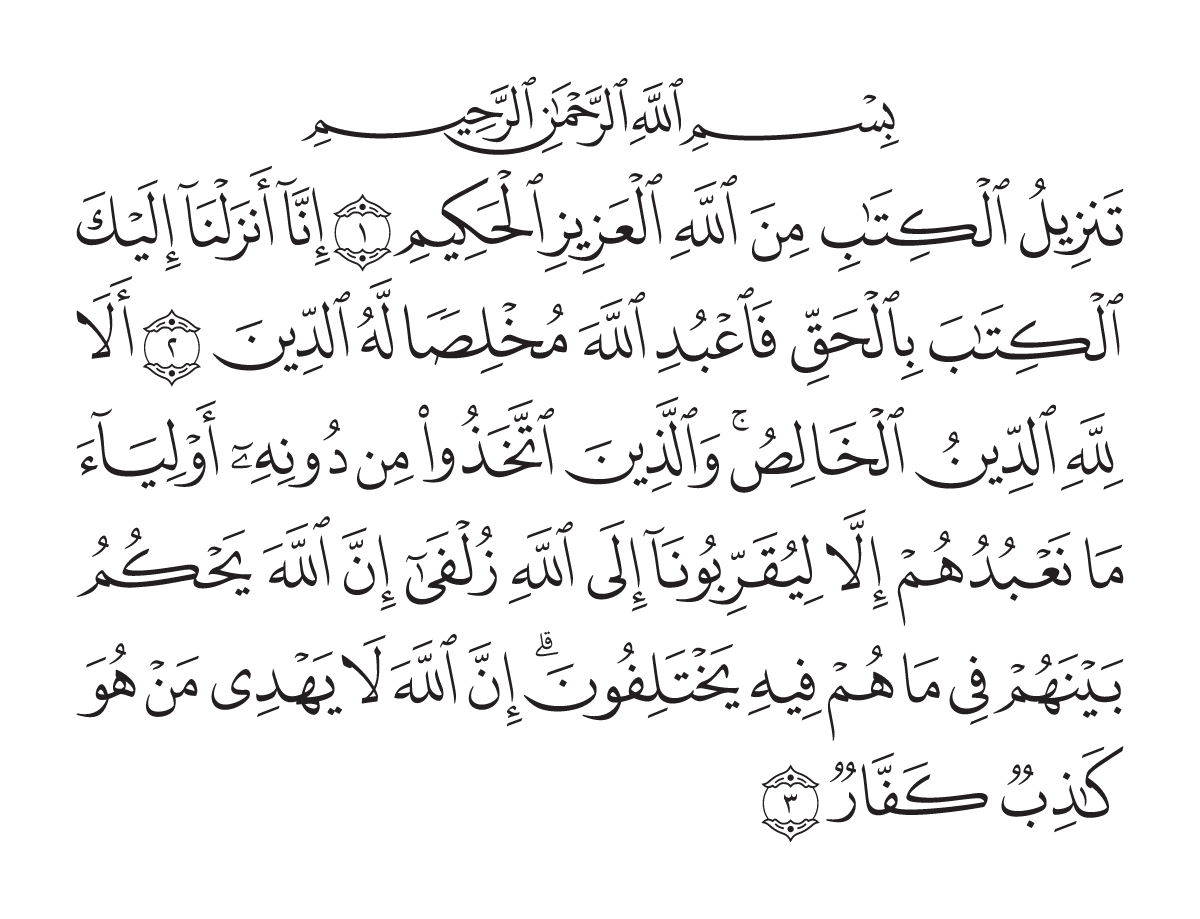 بِسْمِ ٱللَّهِ ٱلرَّحْمَٰنِ ٱلرَّحِيمِ
تَنزِيلُ ٱلْكِتَٰبِ مِنَ ٱللَّهِ ٱلْعَزِيزِ ٱلْحَكِيمِ ١ إِنَّآ أَنزَلْنَآ إِلَيْكَ
ٱلْكِتَٰبَ بِٱلْحَقِّ فَٱعْبُدِ ٱللَّهَ مُخْلِصًا لَّهُ ٱلدِّينَ ٢ أَلَا
لِلَّهِ ٱلدِّينُ ٱلْخَالِصُ ۚ وَٱلَّذِينَ ٱتَّخَذُوا۟ مِن دُونِهِۦٓ أَوْلِيَآءَ
مَا نَعْبُدُهُمْ إِلَّا لِيُقَرِّبُونَآ إِلَى ٱللَّهِ زُلْفَىٰٓ إِنَّ ٱللَّهَ يَحْكُمُ
بَيْنَهُمْ فِى مَا هُمْ فِيهِ يَخْتَلِفُونَ ۗ إِنَّ ٱللَّهَ لَا يَهْدِى مَنْ هُوَ
كَٰذِبٌ كَفَّارٌ ٣